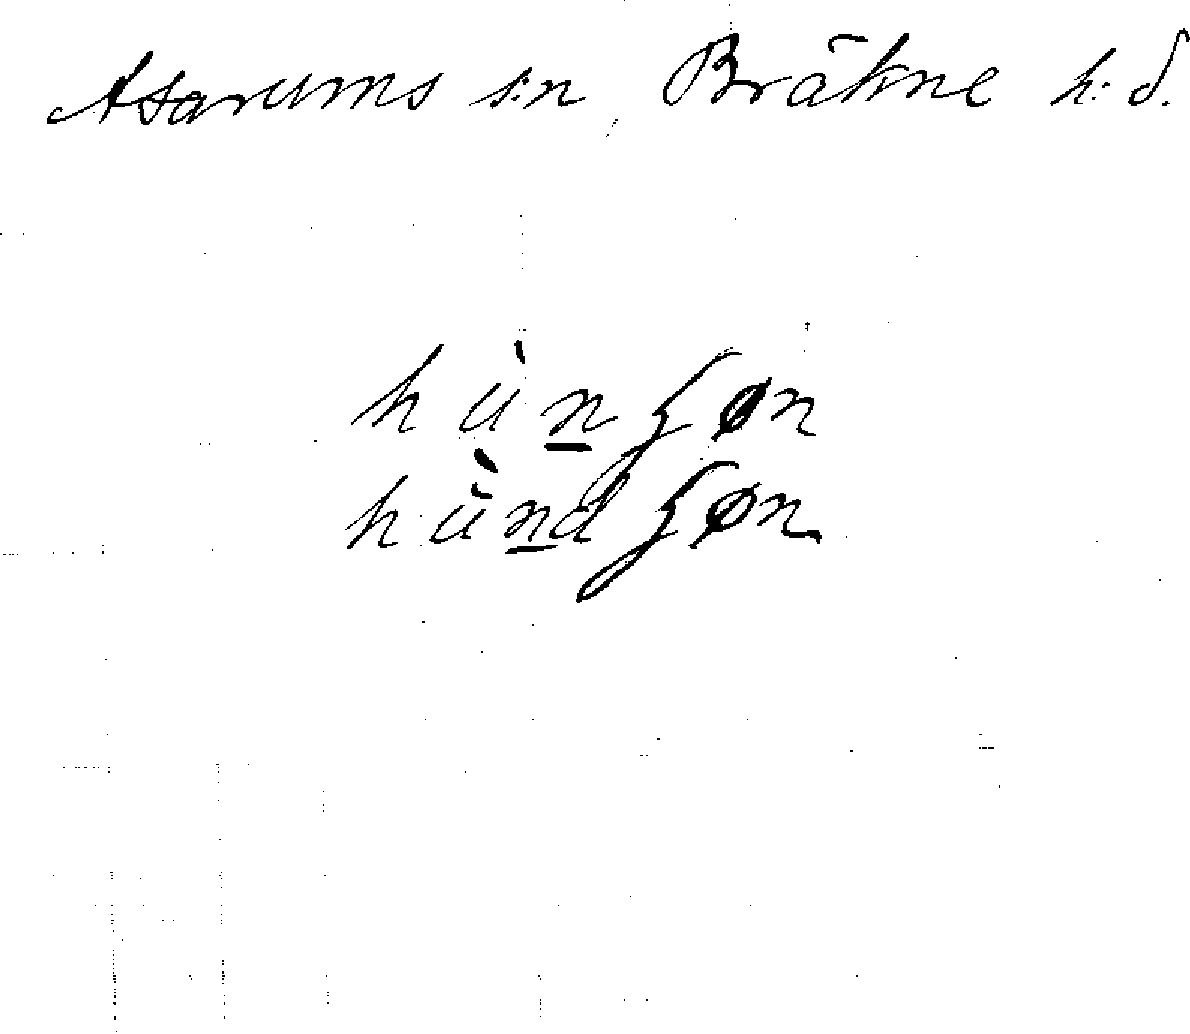 Asarums s:n, Bräkne h:d.
hùn̲ʒøn
hùn̲dʒøn